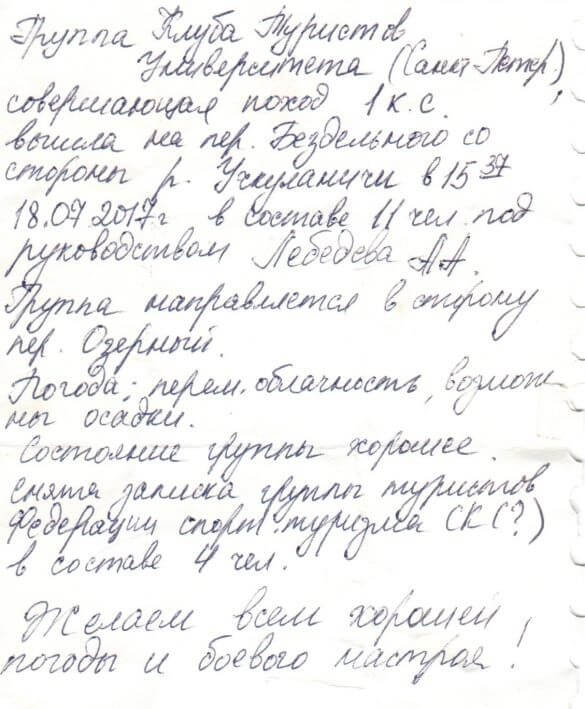 Группа Клуба Туристов
Университета (Санкт-Петер.),
совершающая поход 1 к.с.
вышла на пер. Бездельного со
стороны р. Учкуланичи в 15 37
18.07.2017г в составе 11 чел. под
руководством Лебедева А.А.
Группа направляется в сторону
пер. Озерный.
Погода: перем. облачность, возмож
ны осадки.
Состояние группы хорошее.
Снята записка группы туристов
Федерации спорт. туризма СК (?)
в составе 4 чел.
Желаем всем хорошей
погоды и боевого настроя!